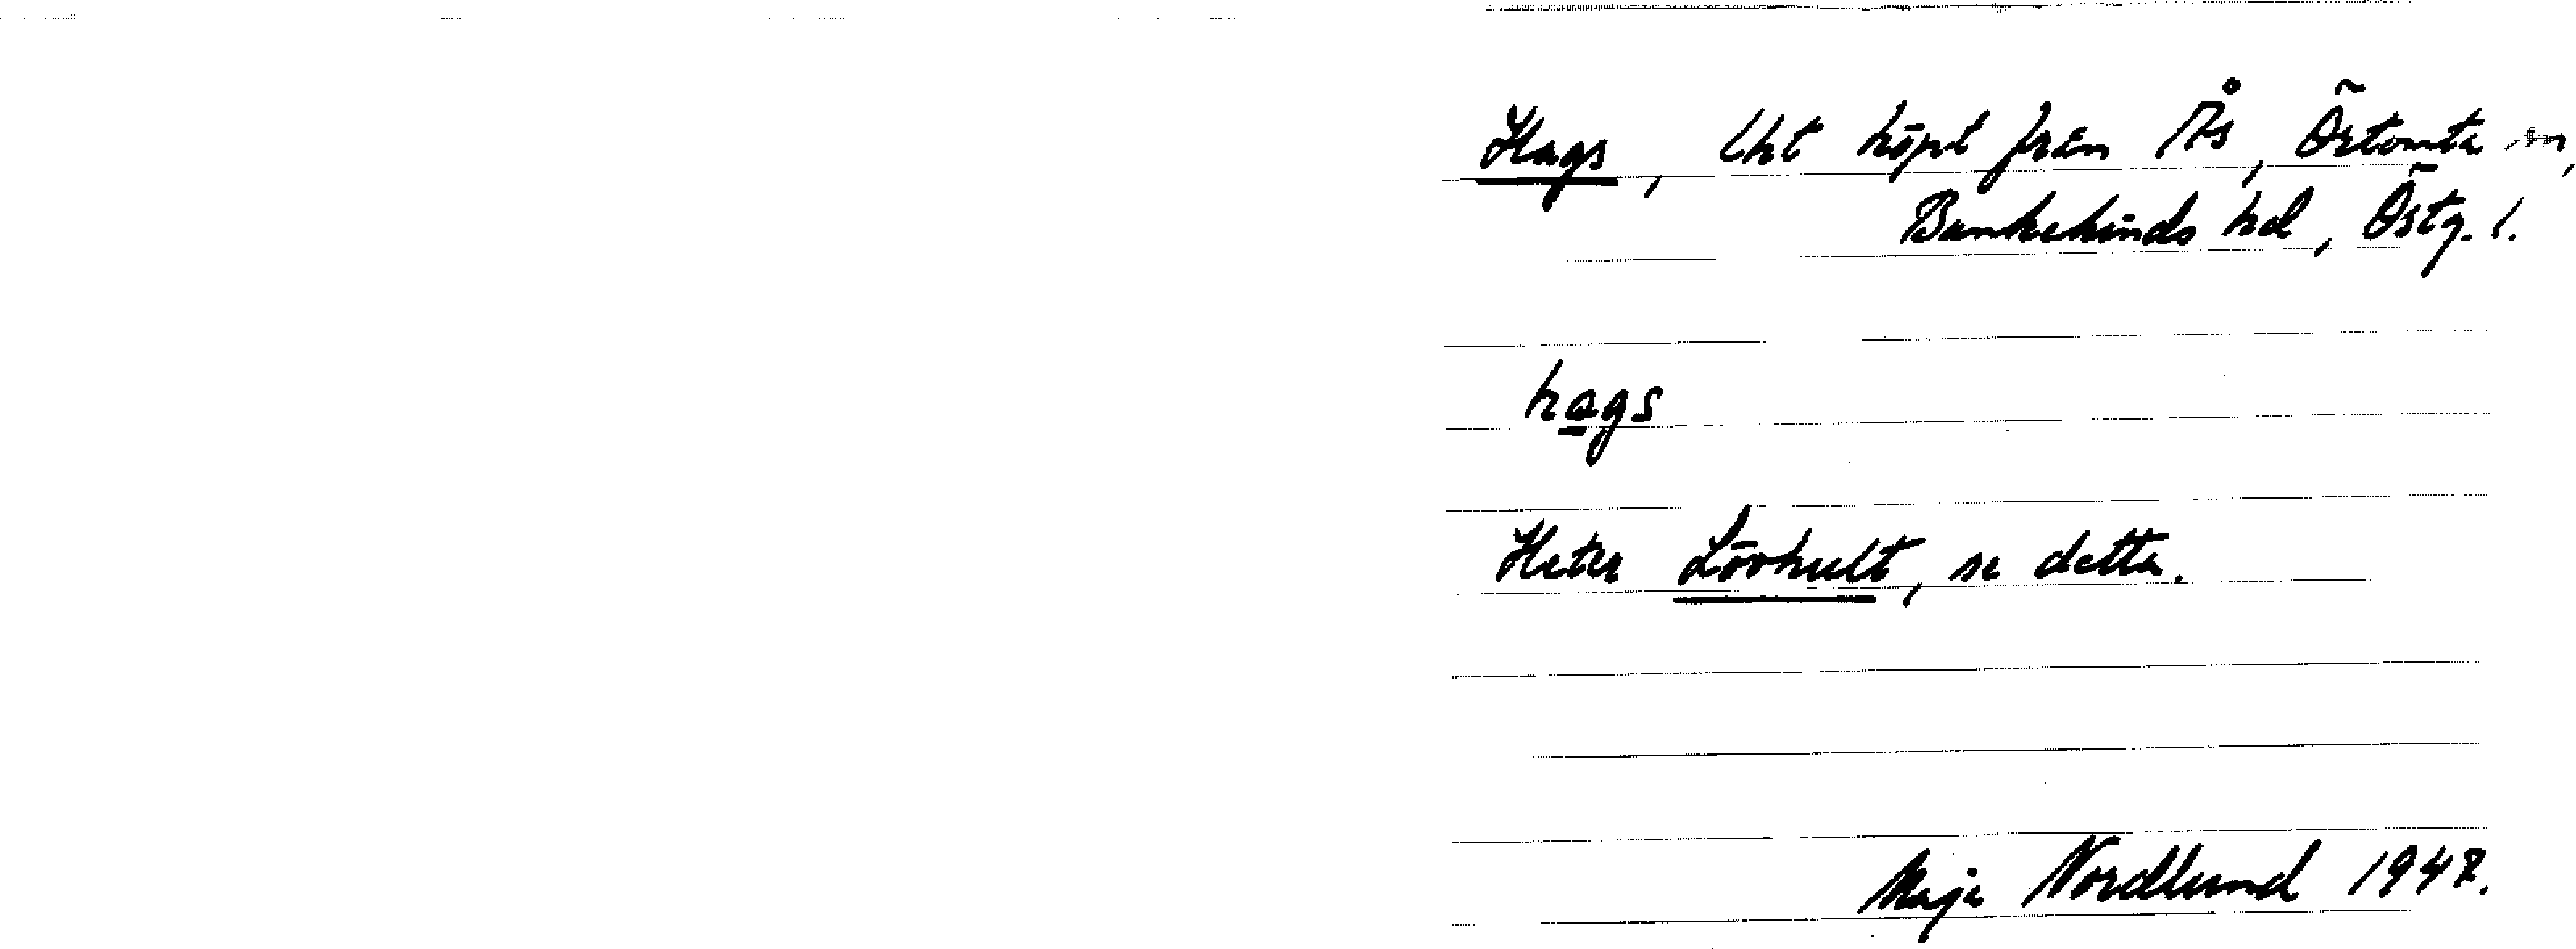 Hags, lht köpt från Ås, Örtomta sn,
Bankekinds hd, Östg. l.
hags
Heter Lövhult, se detta.
Maja Nordlund 1947.